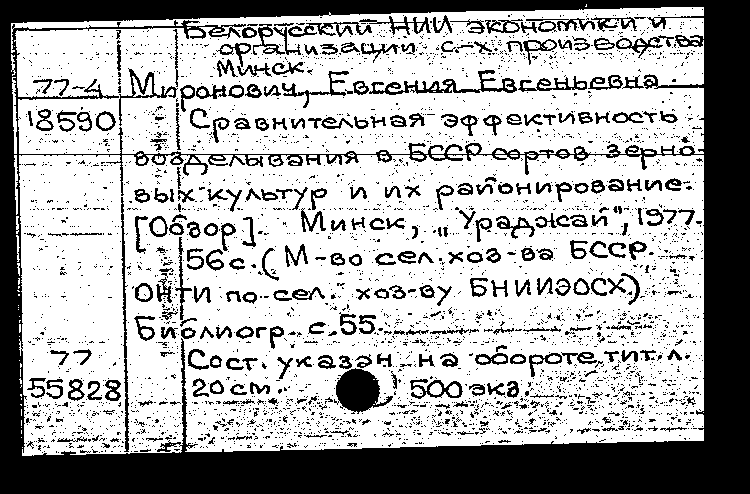 Белорусский НИИ экономики и
организации с.-х производства
Минск.
77-4 Миронович, Евгения Евгеньевна.
18590 Сравнительная эффективность
возделывания в БССР сортов зерно-
вых культур и их районирование.
[Обзор]. Минск, „Ураджай", 1977.
56с. (М-во сел. хоз-ва БССР.
ОНТИ по сел. хоз-ву БНИИЭОСХ)
Библиогр. с. 55
77 Сост. указан на обороте тит. л.
55828 20 см. 500 экз.